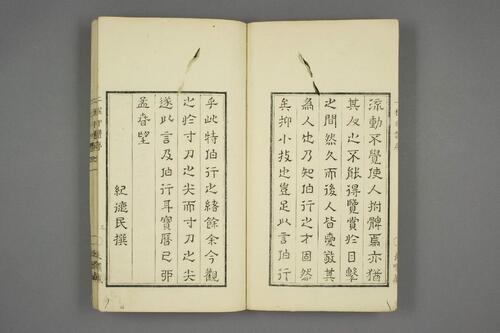 流動不覺使人拊髀焉亦猶
其人之不能得覽賞於目擊
之間然久而後人皆愛敬其
為人也乃知伯行之才固然
矣抑小技也豈足此言伯行
乎此特伯行之緒餘余今觀
之於寸刀之尖而寸刀之尖
遂此言及伯行耳寶曆己卯
孟春望
紀德民撰